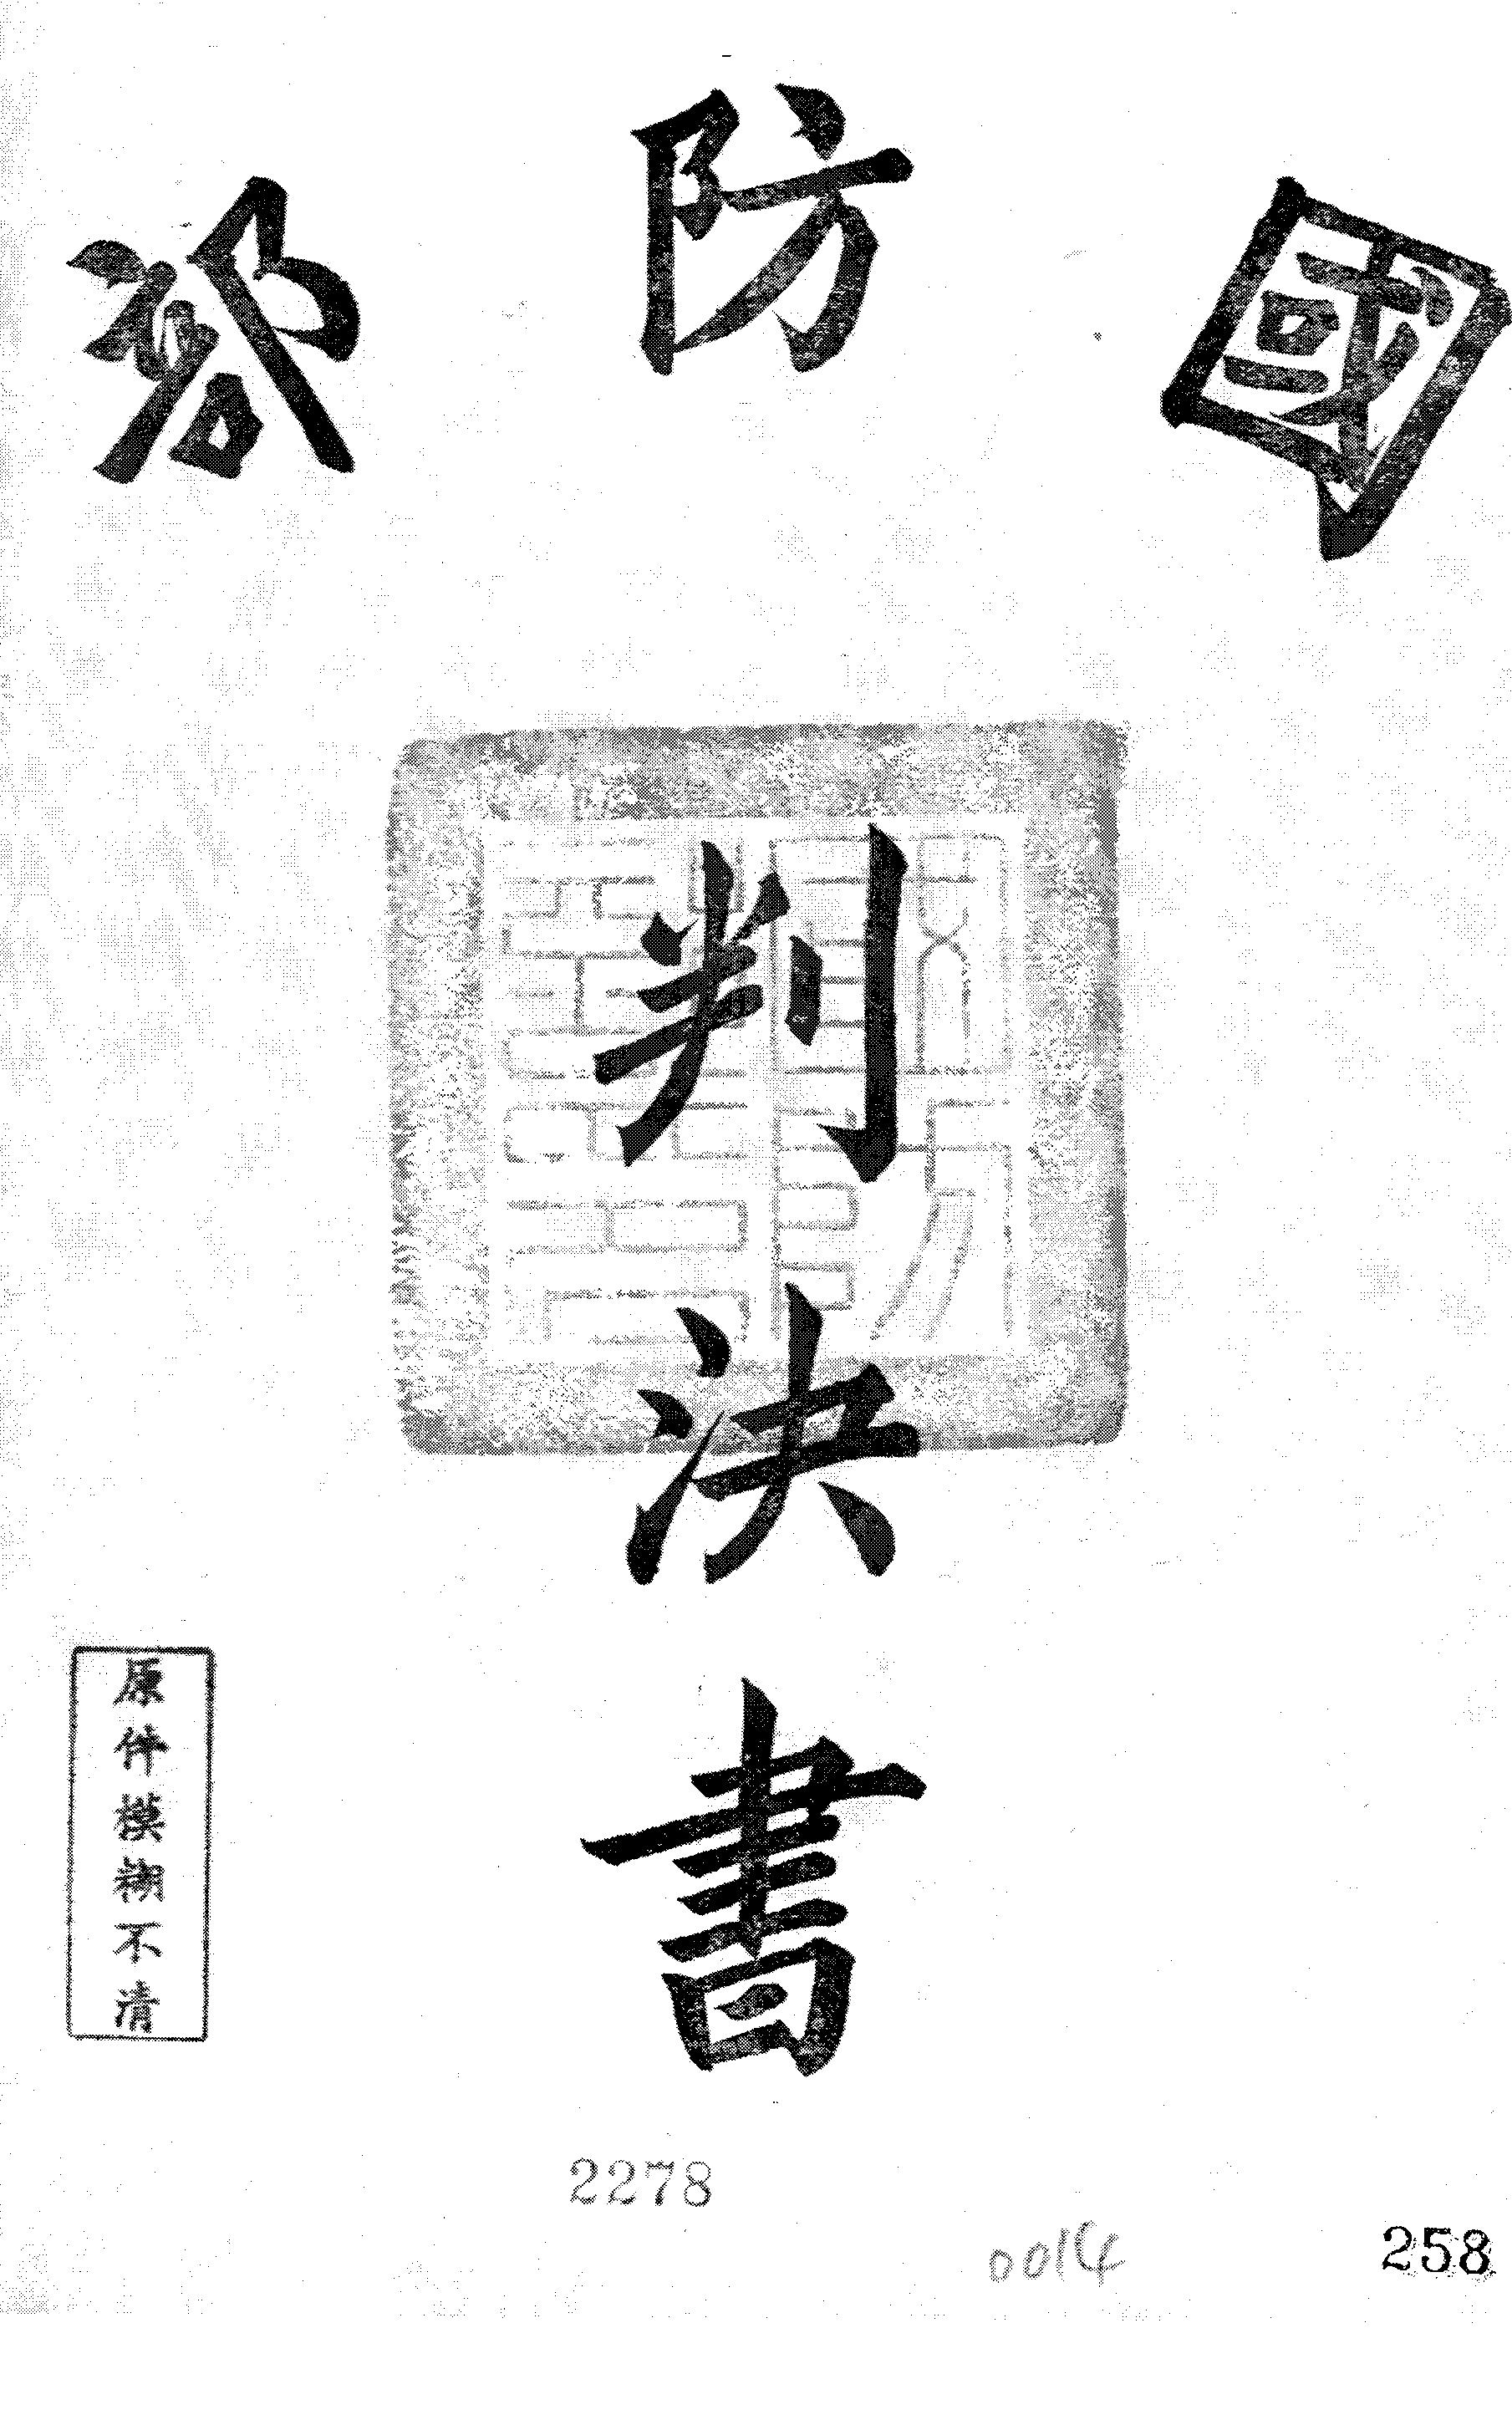 國防部
判決書
原件模糊不清
2278
0014
258